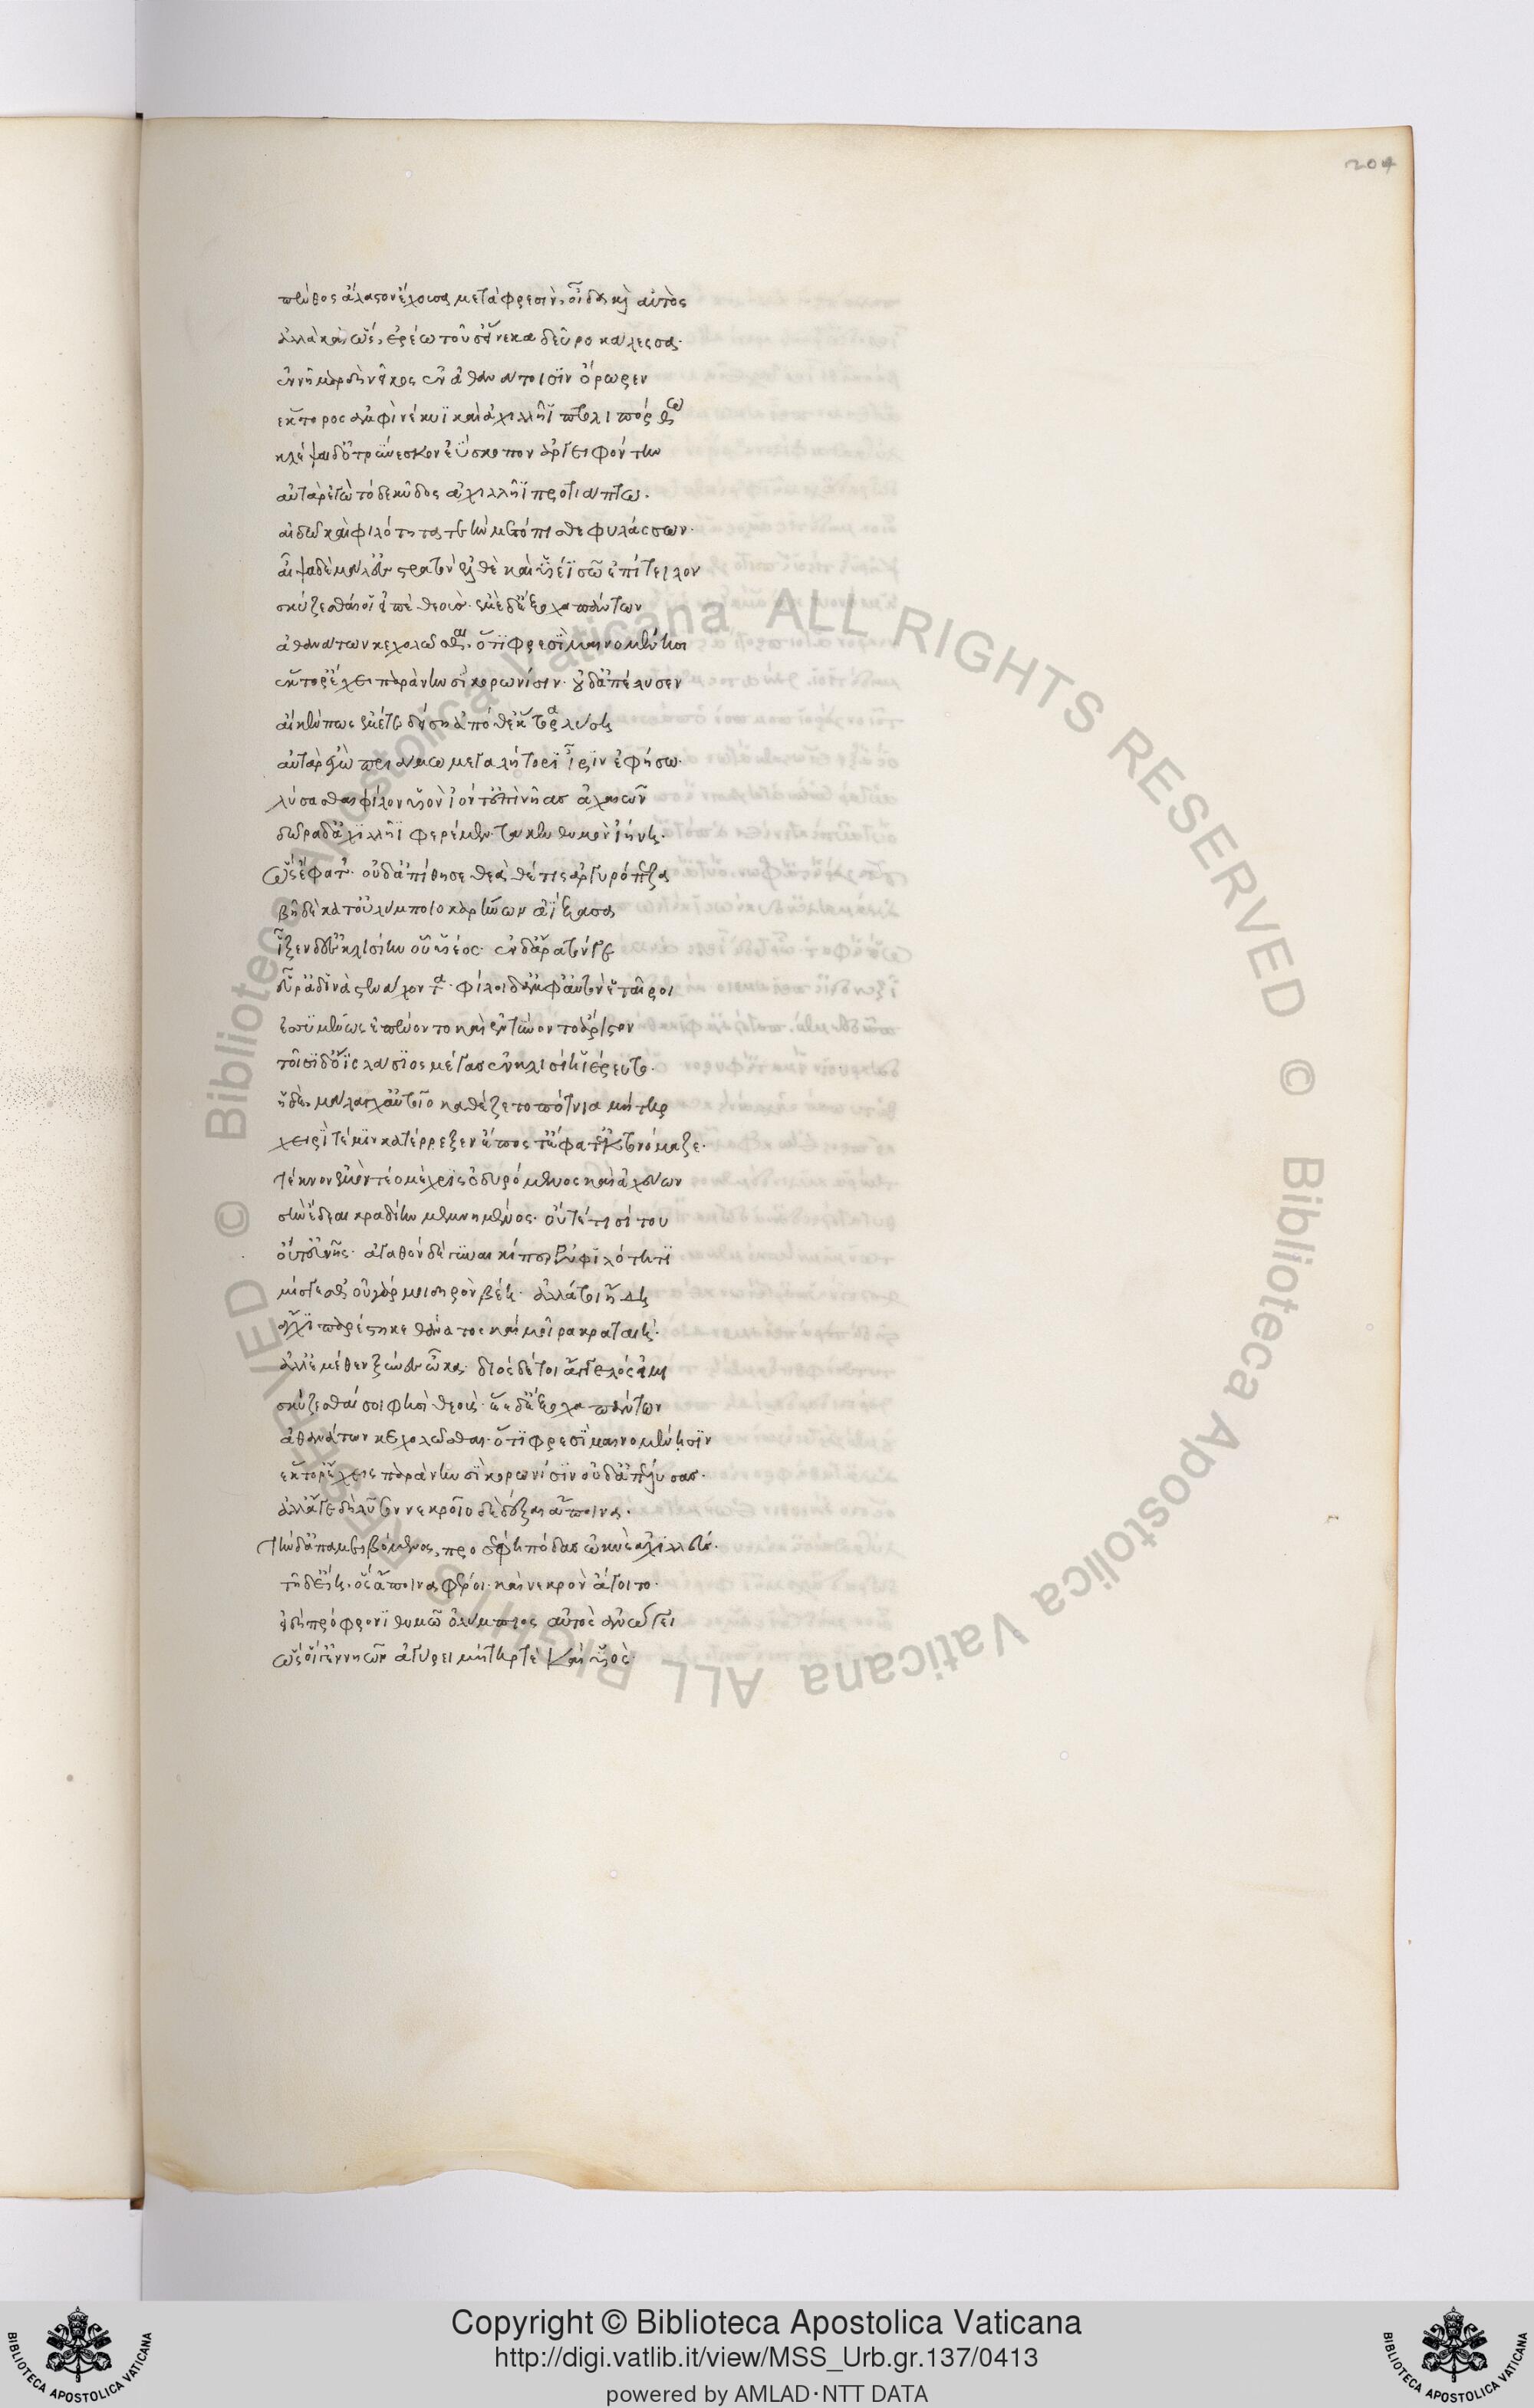 204
πένθος ἄλαστον ἔχουσα μετὰ φρεσὶν οἶδα καὶ αὐτὸς
ἀλλὰ καὶ ὧς ἐρέω τοῦ σ' οὕνεκα δεῦρο κάλεσσα·
ἐννῆμαρ δὴ νεῖκος ἐν ἀθανάτοισιν ὄρωρεν
ἕκτορος ἀμφὶ νέκυϊ καὶ ἀχιλλῆϊ πτολιπόρθω
κλέψαι δ' ὀτρύνεσκον ἐΰσκοπον ἀργειφόντην
αὐτὰρ ἐγὼ τόδε κῦδος ἀχιλλῆϊ προτιάπτω.
αἰδῶ καὶ φιλότητα τεὴν μετόπισθε φυλάσσων·
αἶψα δὲ μάλ' ἐς στρατὸν ἐλθὲ καὶ υἱέϊ σῶ ἐπίτειλον
σκύζεσθαι οἱ εἰπὲ θεούς· ἐμὲ δ' ἔξοχα πάντων
ἀθανάτων κεχολῶσθαι· ὅτι φρεσὶ μαινομένησι
ἕκτορ' ἔχει παρὰ νηυσὶ κορωνίσιν· οὐδ' ἀπέλυσεν
αἴ κέν πως ἐμέ τε δείση ἀπό θ' ἕκτορα λύση
αὐτὰρ ἐγὼ πριάμω μεγαλήτορι ἶριν ἐφήσω·
λύσασθαι φίλον υἱὸν ἰόντ' ἐπὶ νῆας ἀχαιῶν
δῶρα δ' ἀχιλλῆϊ φερέμεν· τά κε θυμὸν ἰήνη·
ὣς ἔφατ'· οὐδ' ἀπίθησε θεὰ θέτις ἀργυρόπεζα
βῆ δὲ κατ' οὐλύμποιο καρήνων ἀΐξασα
ἷξεν δ' ἐς κλισίην οὗ υἱέος· ἔνδ' ἄρα τόν γε
εὗρ' ἁδινὰ στενάχοντα· φίλοι δ' ἀμφ' αὐτὸν ἑταῖροι
ἐσσυμένως ἐπένοντο καὶ ἐντύνοντο ἄριστον
τοῖσι δ' ὄϊς λάσιος μέγας ἐν κλισίη ἱέρευτο·
ἡ δὲ μάλ' ἄγχ' αὐτοῖο καθέζετο πότνια μήτηρ
χειρί τέ μιν κατέρρεξεν ἔπος τ' ἔφατ' ἔκ τ' ὀνόμαζε·
τέκνον ἐμὸν τέο μέχρις ὀδυρόμενος καὶ ἀχεύων
σὴν ἔδεαι κραδίην μεμνημένος· οὔτέ τι σίτου
οὔτ' εὐνῆς· ἀγαθὸν δὲ γυναικί περ ἐν φιλότητι
μίσγεσθ' οὐ γάρ μοι δηρὸν βέη· ἀλλά τοι ἤδη
ἄγχι παρέστηκε θάνατος καὶ μοῖρα κραταιή·
ἀλλ' ἐμέθεν ξύνες ὦκα· διὸς δέ τοι ἄγγελός εἰμι
σκύζεσθαι σοί φησι θεούς· ἓ δ' ἔξοχα πάντων
ἀθανάτων κεχολῶσθαι· ὅτι φρεσὶ μαινομένησιν
ἕκτορ' ἔχεις παρὰ νηυσὶ κορωνίσιν οὐδ' ἀπέλυσας·
ἀλλ' ἄγε δὴ λῦσον νεκροῖο δὲ δέξαι ἄποινα.
τὴν δ' ἀπαμειβόμενος προσέφη πόδας ὠκὺς ἀχιλλεύς·
τῆδ' εἴη· ὃς ἄποινα φέροι· καὶ νεκρὸν ἄγοιτο·
εἰ δὴ πρόφρονι θυμῶ ὀλύμπιος αὐτὸς ἀνώγει
ὣς οἵ γ' ἐν νηῶν ἀγύρει μήτηρ τὲ καὶ υἱὸς·
Copyright © Biblioteca Apostolica Vaticana
http://digi.vatlib.it/view/MSS_Urb.gr.137/0413
powered by AMLAD·NTT DATA
© Biblioteca Apostolica Vaticana ALL RIGHTS RESERVED © Biblioteca Apostolica Vaticana ALL RIGHTS RESERVED
BIBLIOTECA APOSTOLICA VATICANA
BIBLIOTECA APOSTOLICA VATICANA